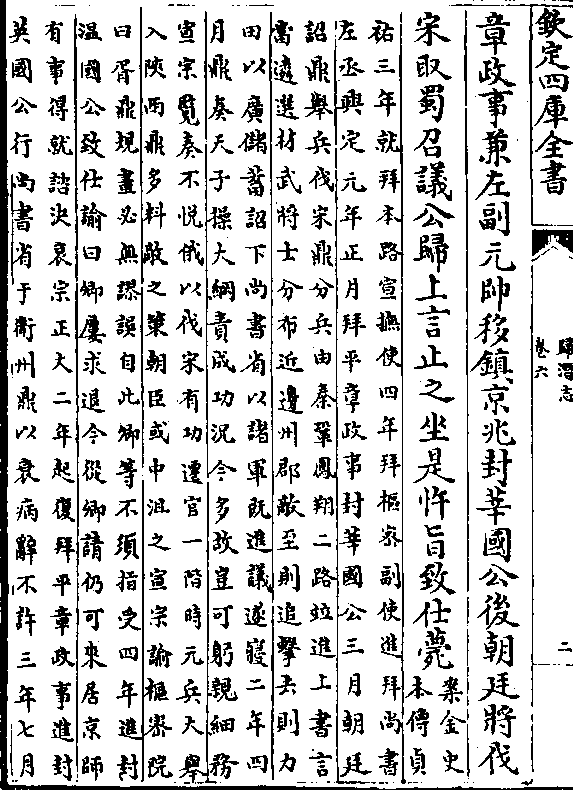 欽定四庫全書
歸潛志
卷六
二
章政事兼左副元帥移鎮京兆封莘國公後朝廷將伐
宋取蜀召議公歸上言止之坐是忤旨致仕薨
案金史
本傳貞
祐三年就拜本路宣撫使四年拜樞密副使進拜尚書
左丞興定元年正月拜平章政事封莘國公三月朝廷
詔鼎舉兵伐宋鼎分兵由秦鞏鳳翔二路竝進上書言
當遴選材武將士分布近邊州郡敵至則追擊去則力
田以廣儲蓄詔下尚書省以諸軍既進議遂寢二年四
月鼎奏天子操大綱責成功況今多故豈可躬親細務
宣宗覽奏不悅俄以伐宋有功遷官一階時元兵大舉
入陝西鼎多料敵之策朝臣或中沮之宣宗諭樞密院
曰胥鼎規畫必無謬誤自此卿等不須指受四年進封
溫國公致仕諭曰卿屢求退今從卿請仍可來居京師
有事得就諮決哀宗正大二年起復拜平章政事進封
英國公行尚書省于衛州鼎以衰病辭不許三年七月